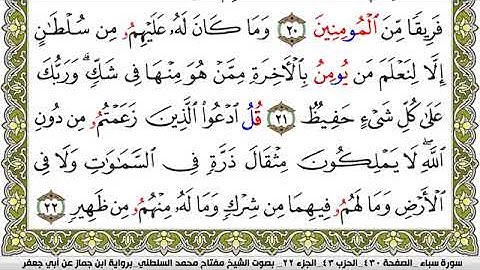 فَرِيقٗا مِّنَ ٱلۡمُومِنِينَ ٢٠ وَمَا كَانَ لَهُۥ عَلَيۡهِمُۥ مِن سُلۡطَٰنٍ
إِلَّا لِنَعۡلَمَ مَن يُومِنُ بِٱلۡأٓخِرَةِ مِمَّنۡ هُوَ مِنۡهَا فِي شَكّٖۗ وَرَبُّكَ
عَلَىٰ كُلِّ شَيۡءٍ حَفِيظٞ ٢١ قُلُ ٱدۡعُواْ ٱلَّذِينَ زَعَمۡتُمُۥ مِن دُونِ
ٱللَّهِۖ لَا يَمۡلِكُونَ مِثۡقَالَ ذَرَّةٖ فِي ٱلسَّمَٰوَٰتِ وَلَا فِي
ٱلۡأَرۡضِ وَمَا لَهُمُۥ فِيهِمَا مِن شِرۡكٖ وَمَا لَهُۥ مِنۡهُمُۥ مِن ظَهِيرٖ ٢٢
سورة سباء _ الصفحة ٤٣٠_ الحزب ٤٣_ الجزء ٢٢_ بصوت الشيخ مفتاح محمد السلطني_برواية ابن جماز عن أبي جعفر